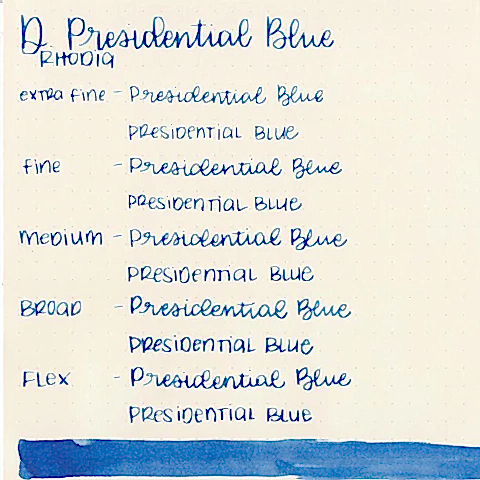 D. Presidential Blue
RHODIA
extra fine - Presidential Blue
Presidential Blue
fine - Presidential Blue
Presidential Blue
medium - Presidential Blue
Presidential Blue
Broad - Presidential Blue
Presidential Blue
Flex - Presidential Blue
Presidential Blue